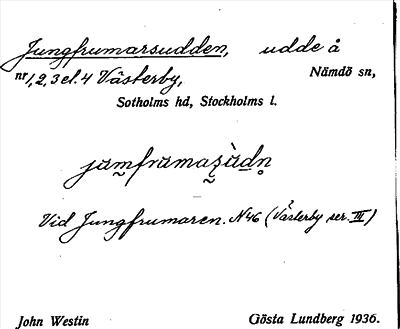 Jungfrumarsudden, udde å
nr 1, 2, 3 el. 4 Västerby, Nämdö sn,
Sotholms hd, Stockholms l.
Vid Jungfrumaren. N46 (Västerby ser. III)
John Westin Gösta Lundberg 1936.